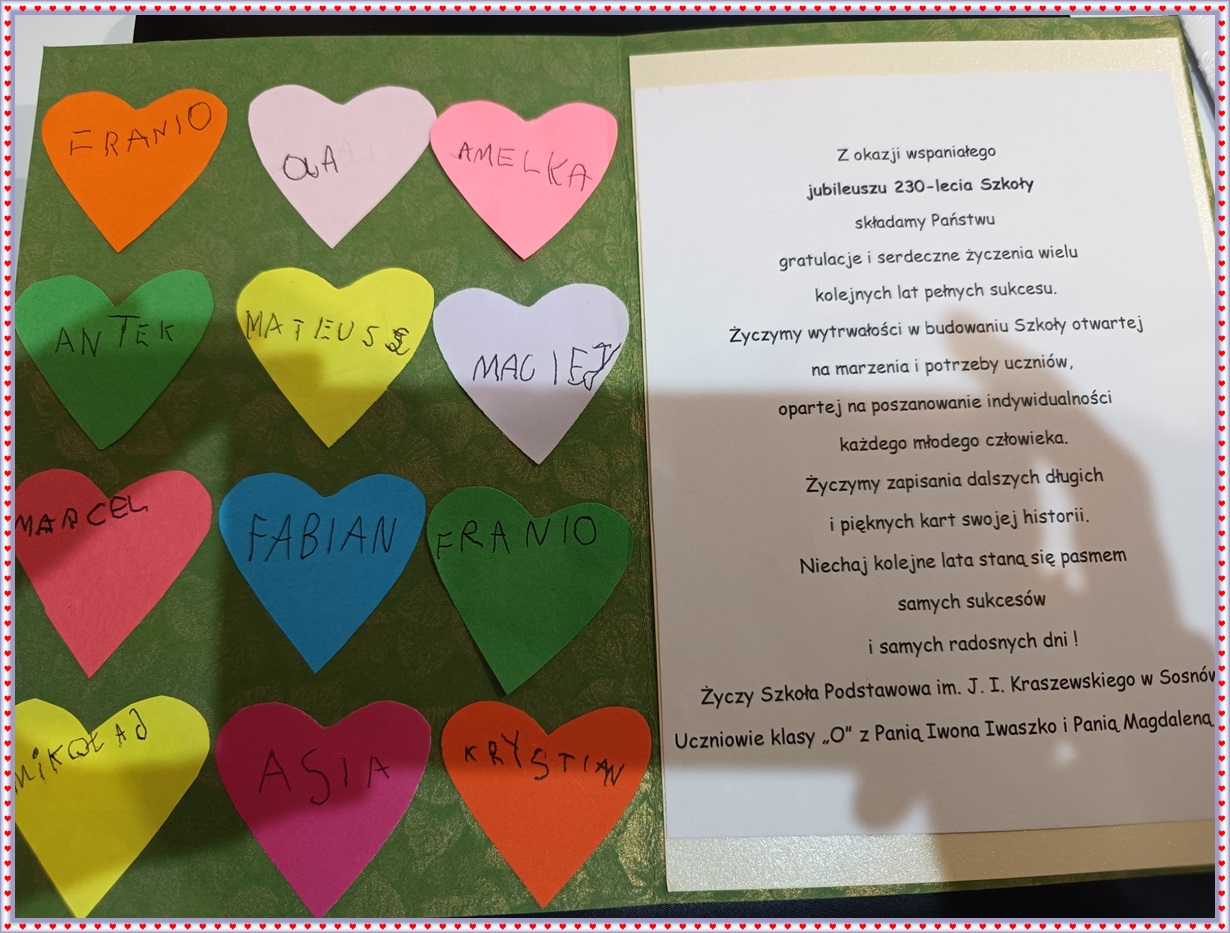 FRANIO
OLA
AMELKA
ANTEK
MATEUSZ
MACIEJ
MARCEL
FABIAN
FRANIO
MIKOŁAJ
ASIA
KRYSTIAN
Z okazji wspaniałego
jubileuszu 230-lecia Szkoły
składamy Państwu
gratulacje i serdeczne życzenia wielu
kolejnych lat pełnych sukcesu.
Życzymy wytrwałości w budowaniu Szkoły otwartej
na marzenia i potrzeby uczniów,
opartej na poszanowanie indywidualności
każdego młodego człowieka.
Życzymy zapisania dalszych długich
i pięknych kart swojej historii.
Niechaj kolejne lata staną się pasmem
samych sukcesów
i samych radosnych dni !
Życzy Szkoła Podstawowa im. J. I. Kraszewskiego w Sosnów
Uczniowie klasy „O” z Panią Iwona Iwaszko i Panią Magdaleną